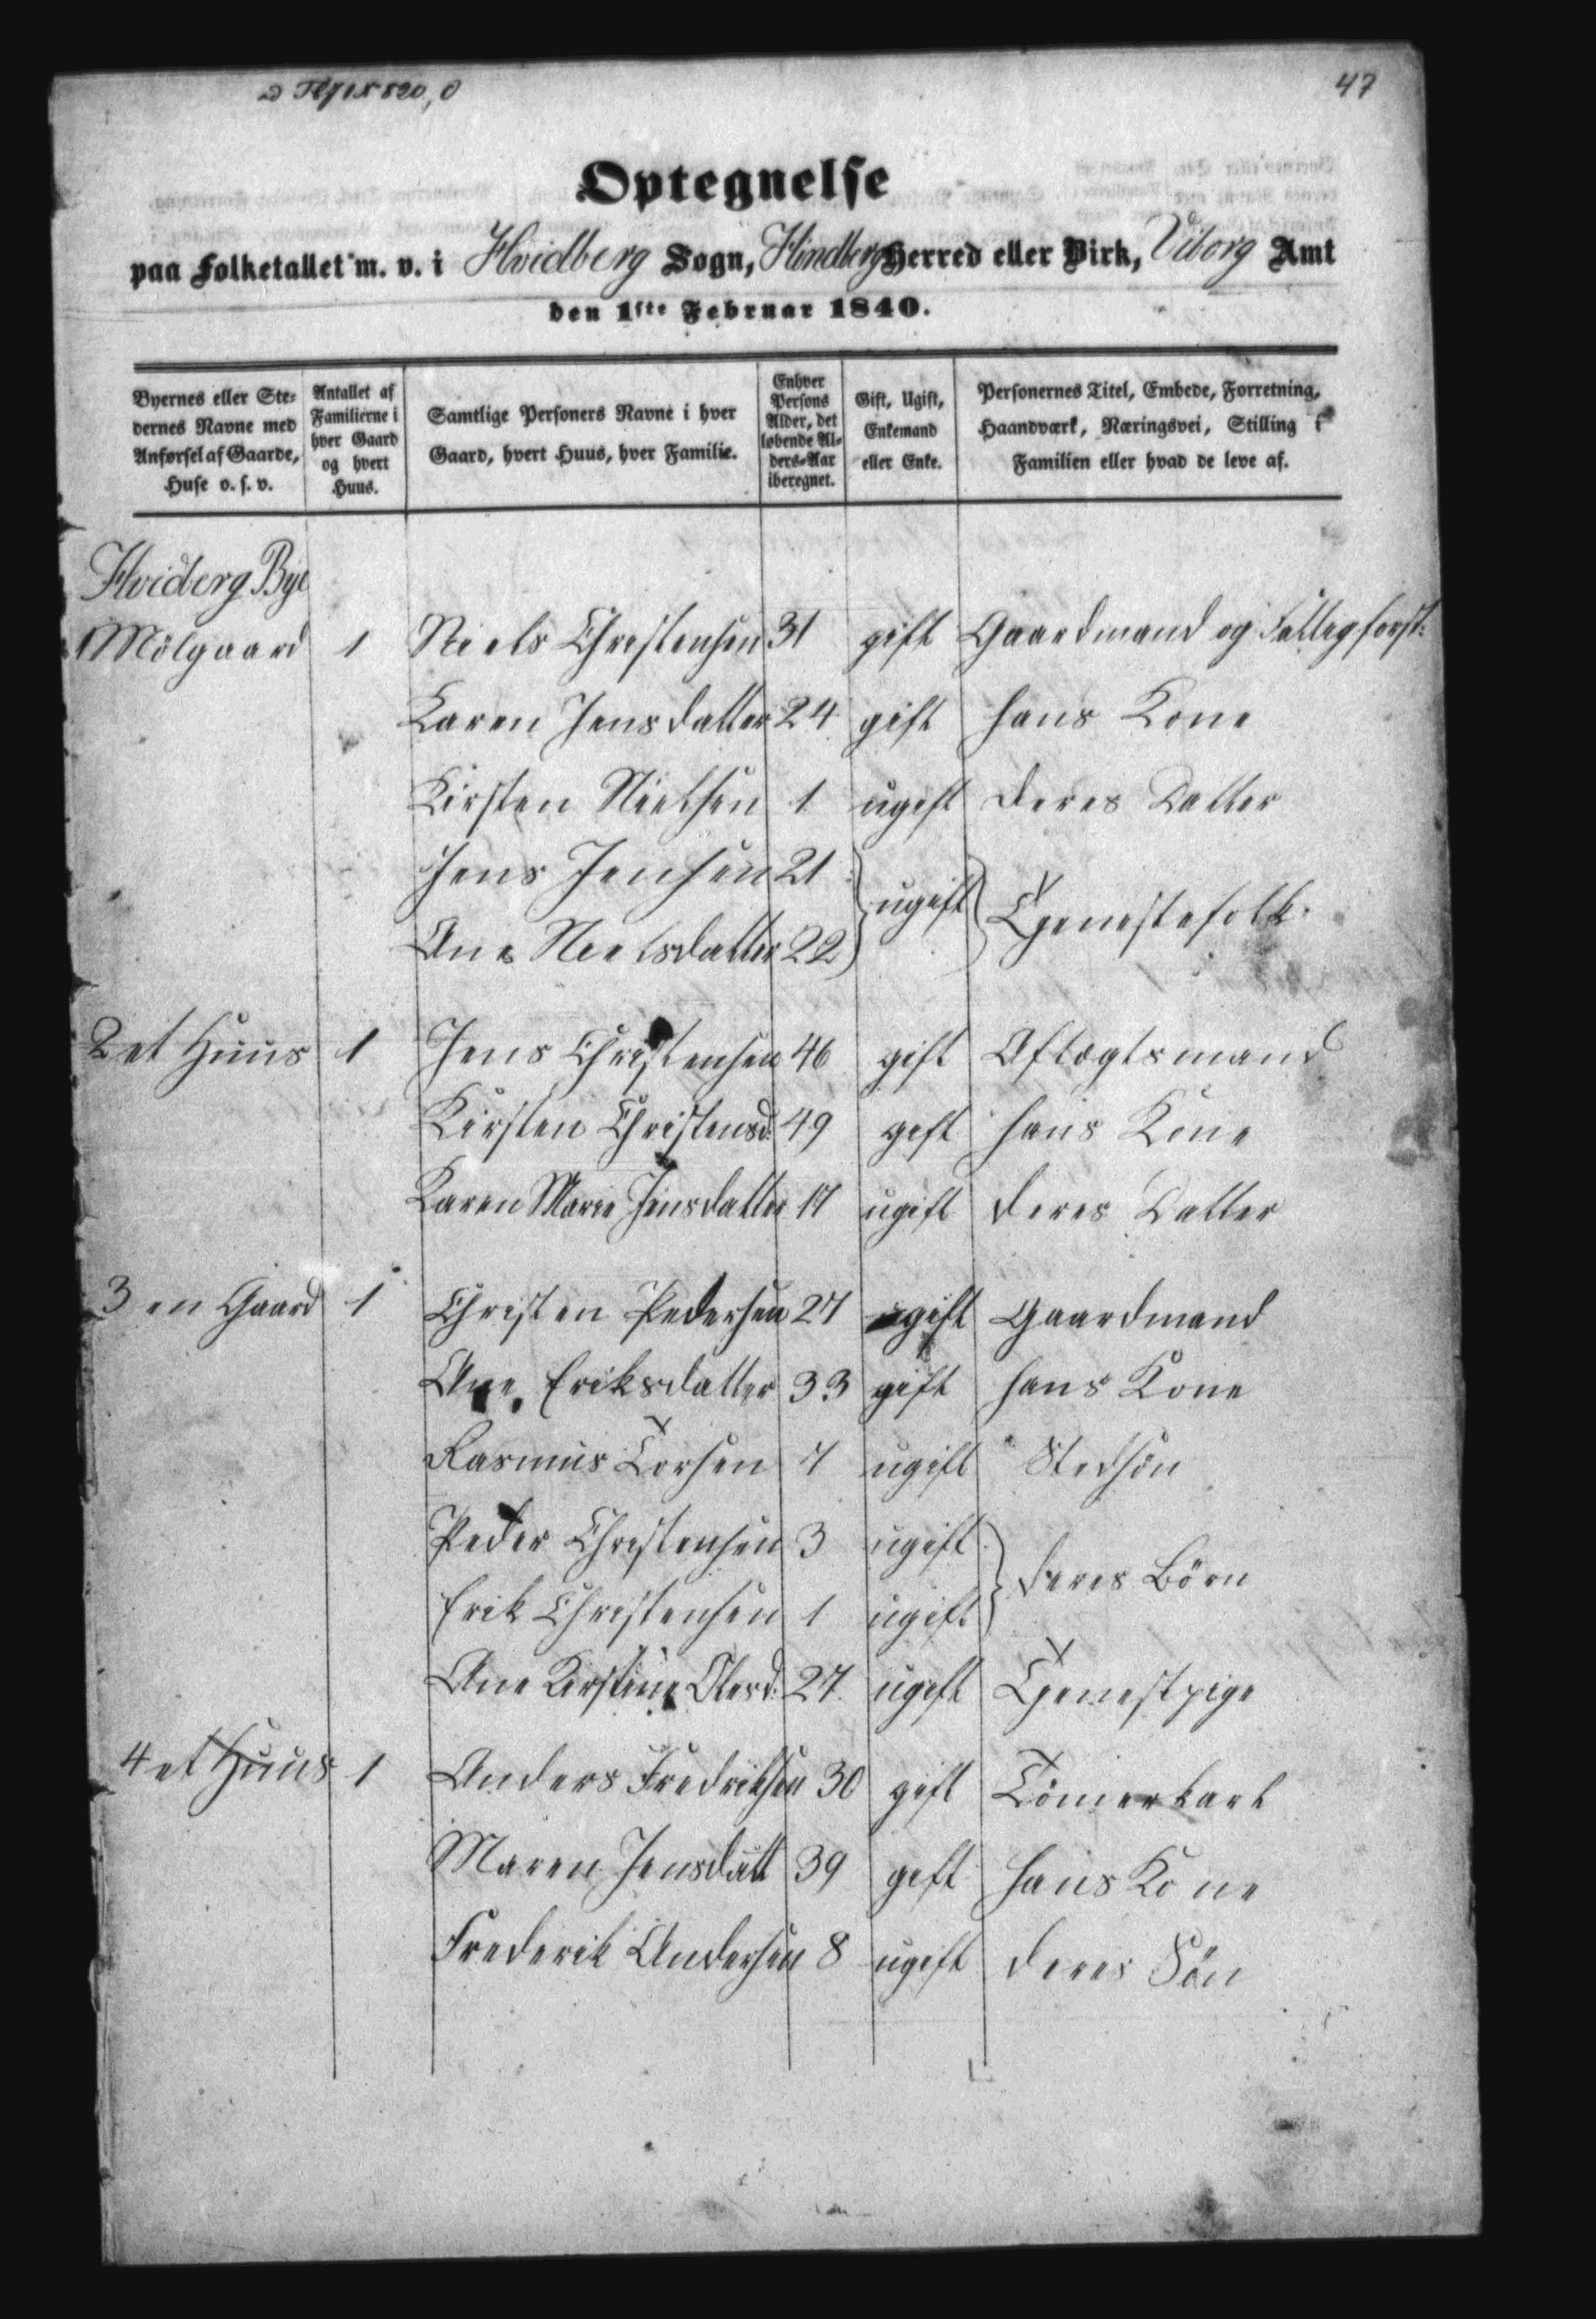 47
Optegnelse
paa Folketallet m. v. i Hvidberg Sogn, Hindberg Herred eller Birk, Viborg Amt
den 1ste Februar 1840.
Byernes eller Stedernes Navne med Anførsel af Gaarde, Huse o. s. v.
Antallet af Familierne i hver Gaard og hvert Huus.
Samtlige Personers Navne i hver Gaard, hvert Huus, hver Familie.
Enhver Persons Alder, det løbende Alders-Aar iberegnet.
Gift, Ugift, Enkemand eller Enke.
Personernes Titel, Embede, Forretning, Haandværk, Næringsvei, Stilling i Familien eller hvad de leve af.
Hviderg Bye
1 Mölgaard 1 Niels Christensen 31 gift Gaardmand og Fattigforst:
Karen Jensdatter 24 gift hans Kone
Kirsten Nielsen 1 ugift deres Datter
Jens Jensen 21
ugift Tjenestefolk.
Ane Nielsdatter 22
2 et Huus 1 Jens Christensen 46 gift Aftægtsmand
Kirsten Christensd: 49 gift hans Kone
Karen Marie Jensdatter 17 ugift deres Datter
3 en Gaard 1 Christen Pedersen 27 gift Gaardmand
Ane Eriksdatter 33 gift hans Kone
Rasmus Torsen 7 ugift Stedsön
Peder Christensen 3 ugift
deres Börn
Erik Christensen 1 ugift
Ane Kirstine Olesd: 27 ugift Tjenestpige
4 et Huus 1 Anders Fredriksen 30 gift Tömerkarl
Maren Jensdatt 39 gift hans Kone
Frederik Andersen 8 ugift deres Sön